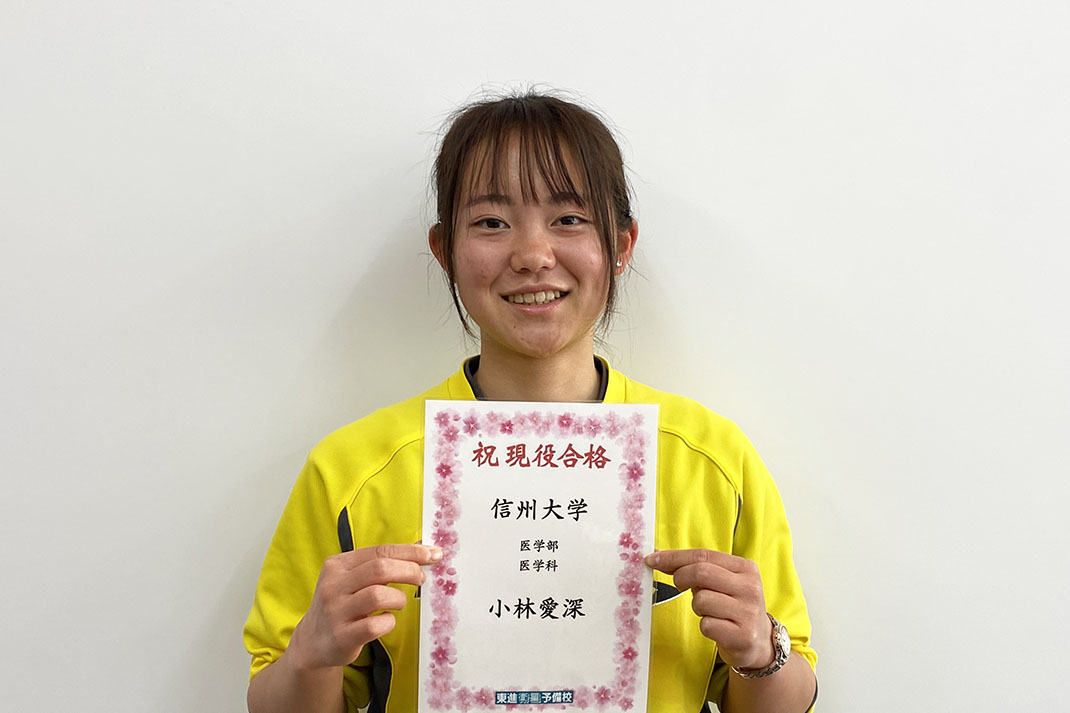 祝 現役合格
信州大学
医学部
医学科
小林愛深
東進衛星予備校